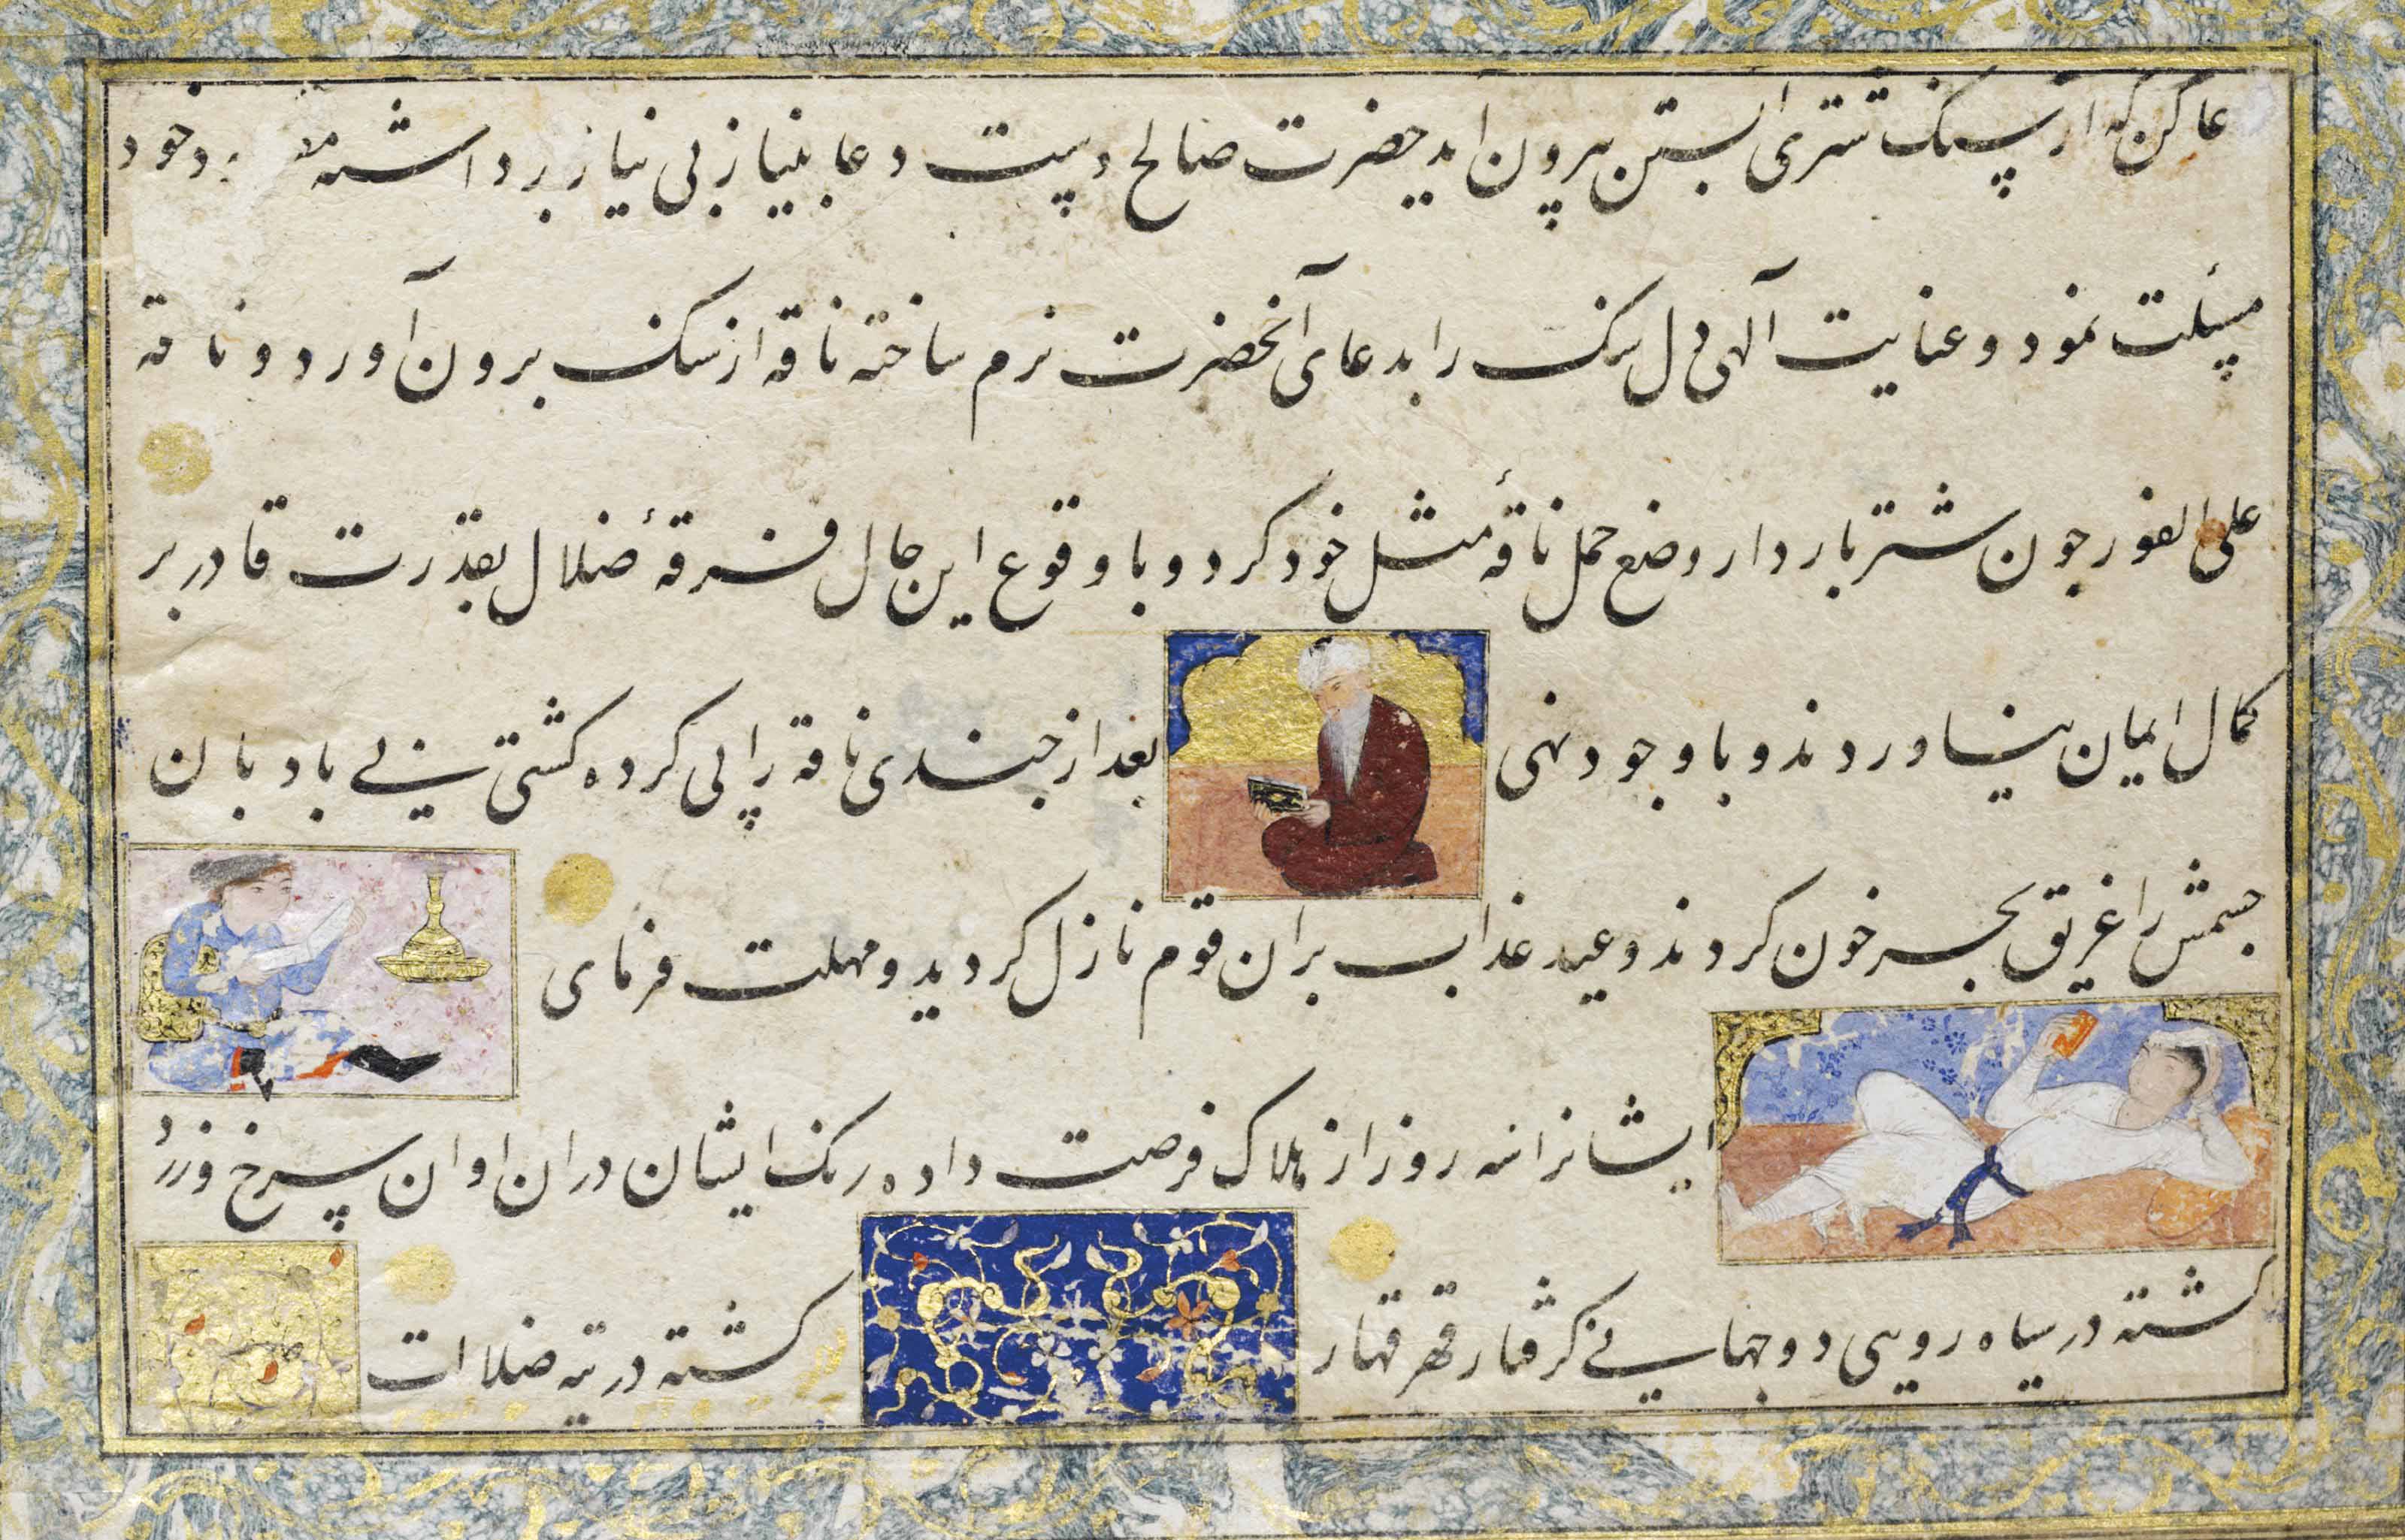 عا کن که از سنک شتری ابستن بیرون اید حضرت صالح دست دعا بنیاز بی نیاز برداشته خود
مسئلت نمود و عنایت آلهی دل سنک را بدعای آنحضرت نرم ساخته ناقه از سنک برون آورد و ناقه
علی الفور جون شتر باردار وضع حمل ناقهٔ مثل خود کرد و با وقوع این حال فرقهٔ ضلال بقدرت قادر بر
کمال ایمان نیاوردند و با وجود نهی بعد از جندی ناقه را پی کرده کشتی بی بادبان
جسمش را غریق بحر خون کردند وعید عذاب بران قوم نازل کردید و مهلت فرمای
ایشانرا سه روز از هلاک فرصت داده رنک ایشان دران اوان سرخ و زرد
کشته در سیاه رویی دو جهانی کرفتار قهر قهار کشته در تیه ضلالت